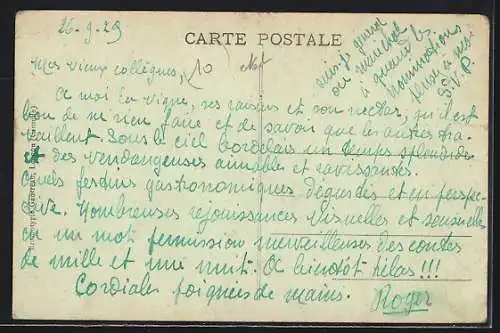 26-9-29
CARTE POSTALE
suis-je général
ou maréchal
à quand les
nominations
S.V.P.
Mes vieux collègues,
10
A moi la vigne, ses raisins et son nectar, qu'il est
bon de ne rien faire et de savoir que les autres tra-
vaillent. Sous le ciel bordelais un temps splendide
et des vendangeuses aimables et ravissantes.
festins gastronomiques dégustés et en perspec-
tive. Nombreuses réjouissances visuelles et sensuelles
en un mot permission merveilleuse des contes
de mille et une nuit. A bientôt hélas !!!
Cordiales poignées de mains.
Roger